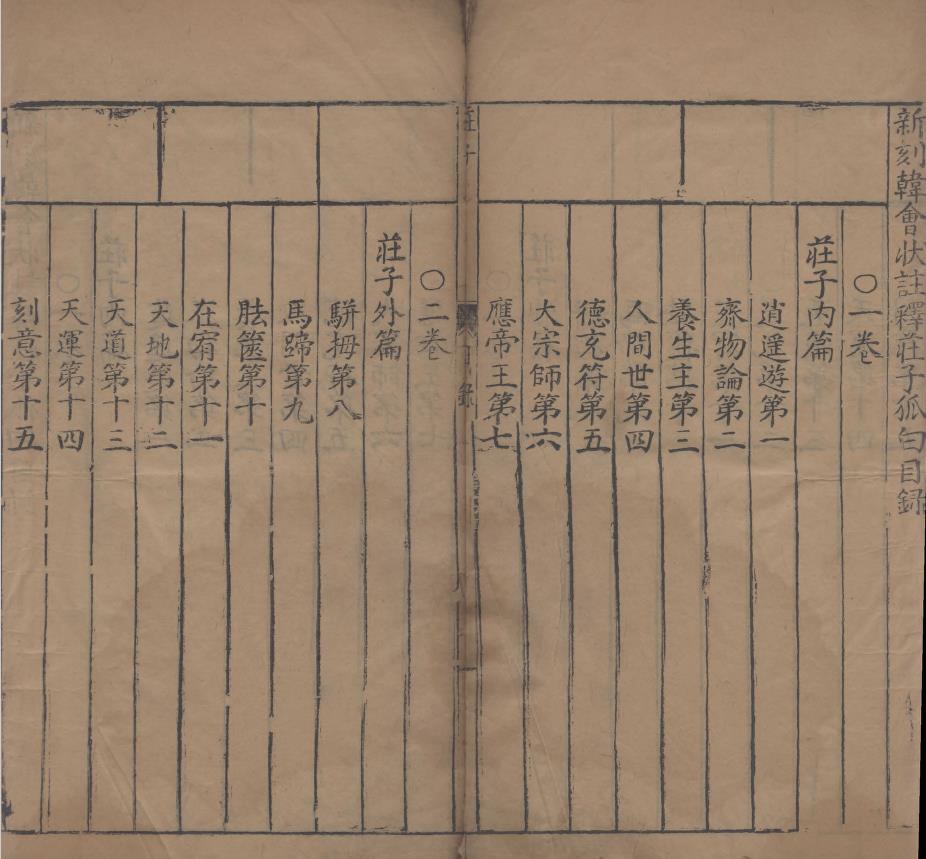 新刻韓會狀註釋莊子狐白目錄
○一卷
莊子内篇
逍遥遊第一
齊物論第二
養生主第三
人間世第四
德充符第五
大宗師第六
應帝王第七
莊子
目錄
○二卷
莊子外篇
駢拇第八
馬蹄第九
胠篋第十
在宥第十一
天地第十二
天道第十三
天運第十四
刻意第十五